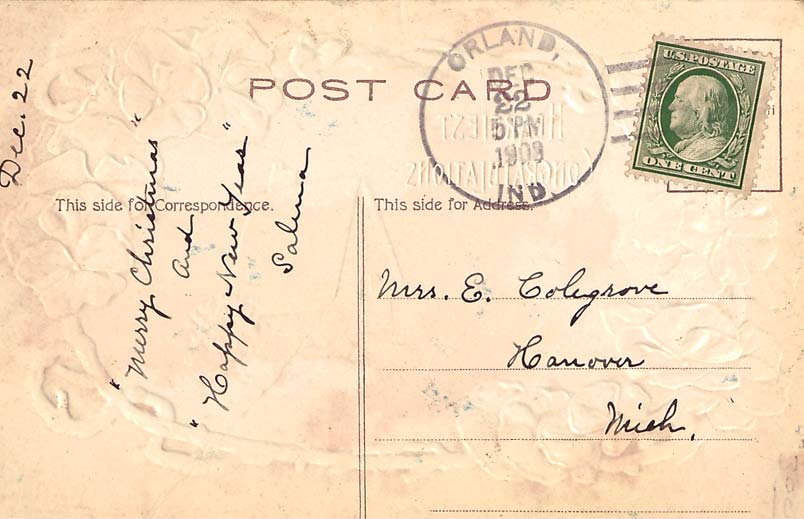 POST CARD
ORLAND,
DEC
22
5 PM
1909
IND
U.S. POSTAGE
ONE CENT
This side for Correspondence.
This side for Address.
Dec. 22
"Merry Christmas"
and
"Happy New Year"
Salma
Mrs. E. Colegrove
Hanover
Mich.